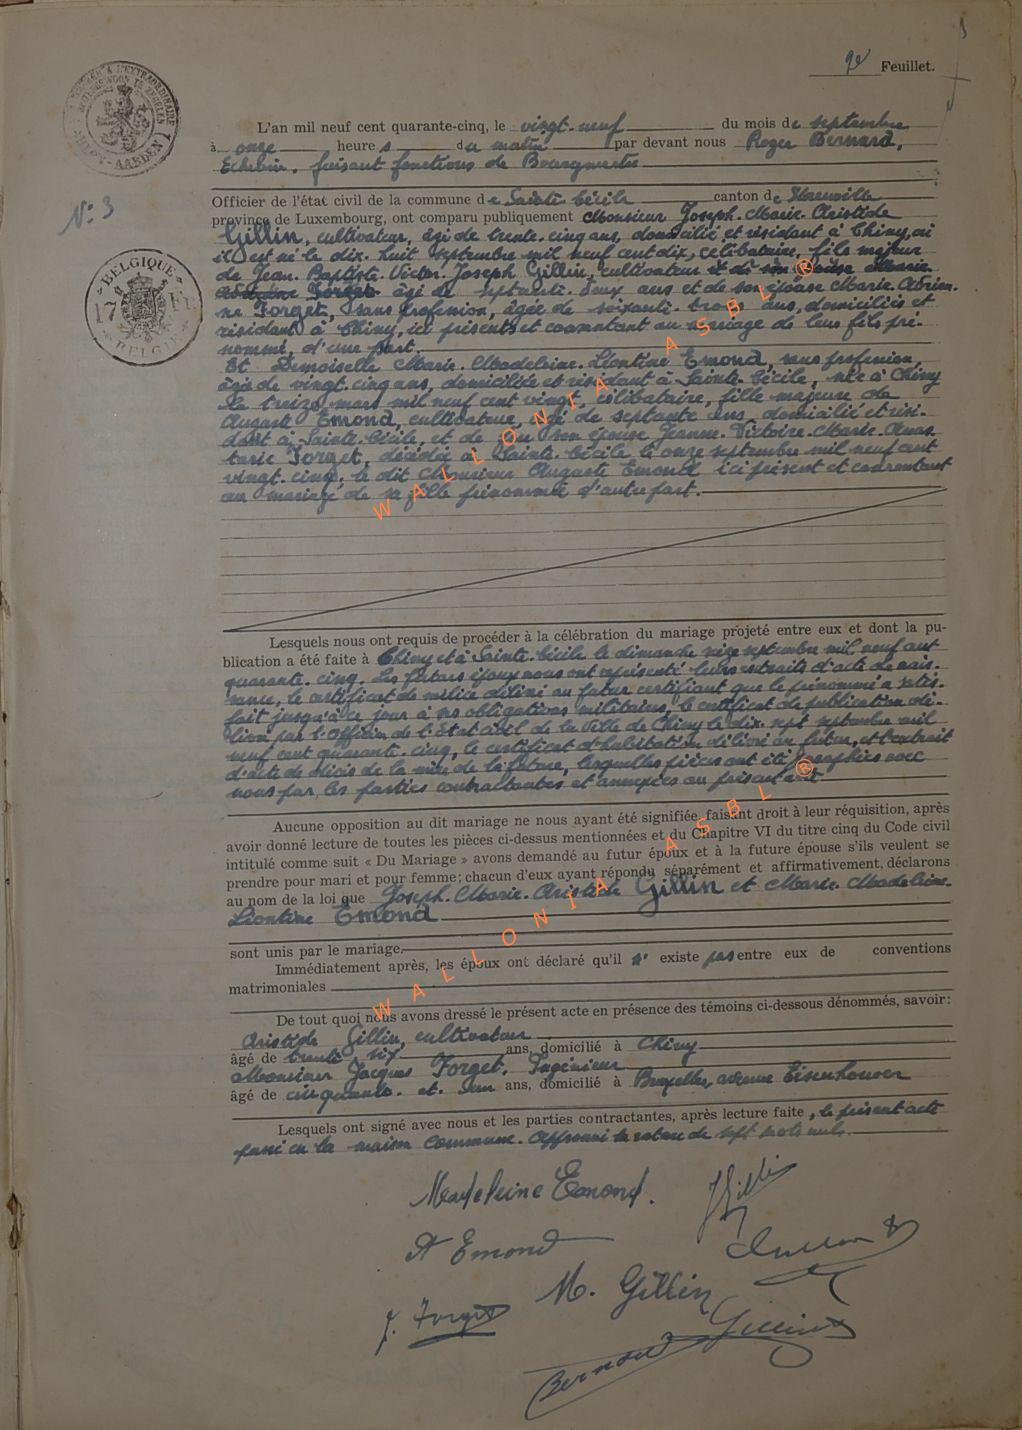 2e Feuillet.
L'an mil neuf cent quarante-cinq, le vingt-neuf du mois de septembre
à onze heures du matin par devant nous Roger Bernard,
Echevin, faisant fonctions de Bourgmestre
Officier de l'état civil de la commune de Sainte-Cécile canton de Florenville
N° 3
province de Luxembourg, ont comparu publiquement Monsieur Joseph-Marie-Aristide
Gillin, cultivateur, âgé de trente-cinq ans, domicilié et résidant à Chiny, où
il est né le dix-huit septembre mil neuf cent dix, célibataire, fils majeur
de Jean-Baptiste-Victor-Joseph Gillin, cultivateur et de son épouse Marie
Adrienne Forget âgé de septante-deux ans et de son épouse Marie-Adrien-
ne Forget, sans profession, âgée de soixante-trois ans, domiciliés et
résidant à Chiny, ici présents et consentant au mariage de leur fils pré-
nommé, d'une part.
Et Demoiselle Marie-Madeleine-Léontine Emond, sans profession,
âgée de vingt-cinq ans, domiciliée et résidant à Sainte-Cécile, née à Chiny
le treize mars mil neuf cent vingt, célibataire, fille majeure de
Auguste Emond, cultivateur, âgé de septante ans, domicilié et rési-
dant à Sainte-Cécile, et de son épouse Jeanne-Victoire-Marie-Anas
tasie Forget, décédée à Sainte-Cécile le onze septembre mil neuf cent
vingt-cinq, le dit Monsieur Auguste Emond ici présent et consentant
au mariage de sa fille prénommée d'autre part.
Lesquels nous ont requis de procéder à la célébration du mariage projeté entre eux et dont la pu-
blication a été faite à Chiny et à Sainte-Cécile le dimanche seize septembre mil neuf cent
quarante-cinq. Les futurs époux nous ont représenté leurs extraits d'acte de nais-
sance, le certificat de milice délivré au futur certifiant que le prénommé a satis-
fait jusqu'à ce jour à ses obligations militaires, le certificat de publication dé-
livré par l'Officier de l'Etat civil de la Ville de Chiny le dix-sept septembre mil
neuf cent quarante-cinq, le certificat d'habitation délivré au futur, et l'extrait
d'acte de décès de la mère de la future, lesquelles pièces ont été paraphées avec
nous par les parties contractantes et annexées au présent acte
Aucune opposition au dit mariage ne nous ayant été signifiée, faisant droit à leur réquisition, après
avoir donné lecture de toutes les pièces ci-dessus mentionnées et du Chapitre VI du titre cinq du Code civil
intitulé comme suit « Du Mariage » avons demandé au futur époux et à la future épouse s'ils veulent se
prendre pour mari et pour femme; chacun d'eux ayant répondu séparément et affirmativement, déclarons
au nom de la loi que Joseph-Marie-Aristide Gillin et Marie-Madeleine-
Léontine Emond
sont unis par le mariage.
Immédiatement après, les époux ont déclaré qu'il n' existe pas entre eux de conventions
matrimoniales
De tout quoi nous avons dressé le présent acte en présence des témoins ci-dessous dénommés, savoir:
Aristide Gillin, cultivateur
âgé de trente-six ans, domicilié à Chiny
Monsieur Jacques Forget, Ingénieur
âgé de cinquante-et-un ans, domicilié à Bruxelles, avenue Eisenhower
Lesquels ont signé avec nous et les parties contractantes, après lecture faite, le présent acte
passé en la maison communale. Approuvé la rature de sept mots nuls.
Madeleine Emond. J Gillin
A Emond
M. Gillin
J. Forget
Gillin
Bernard
BELGIQUE
BELGIE
WALLONIA ASBL ®
WALLONIA ASBL ®